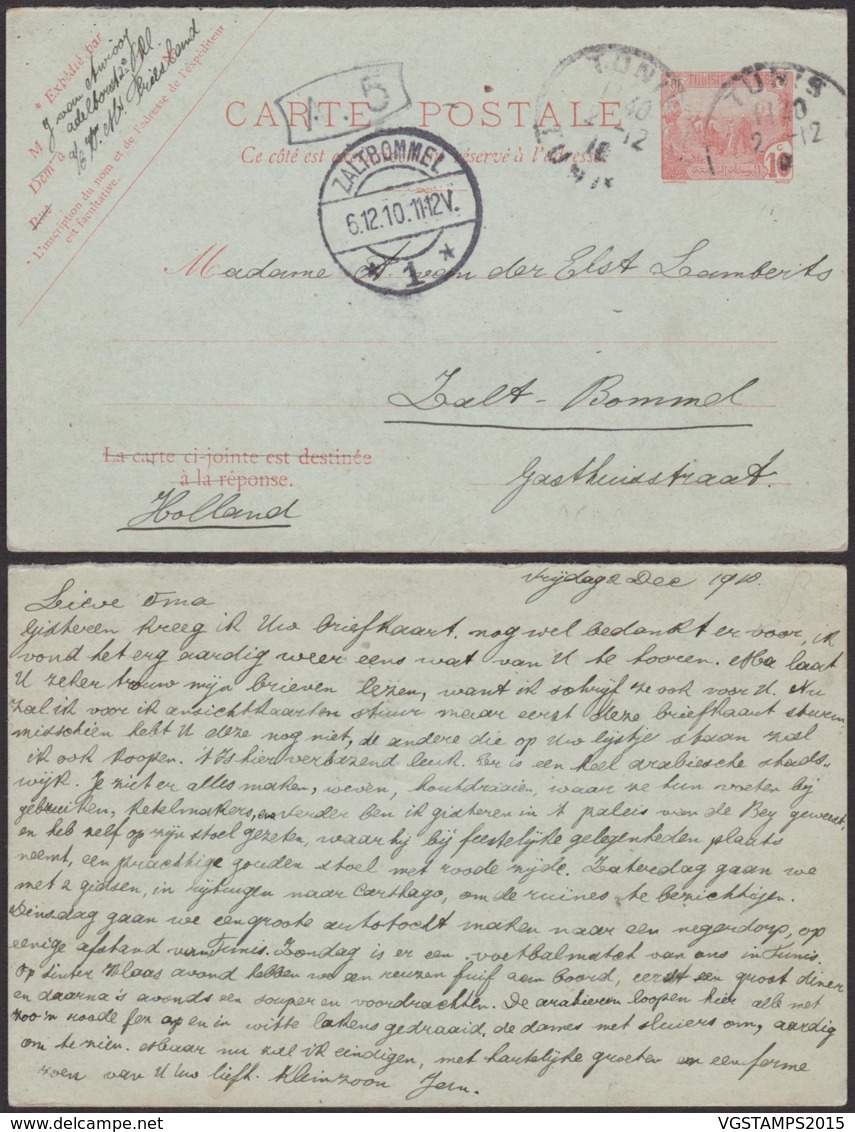 * Expédié par
M J van
adelborst 2e Kl
a/b Hr. Ms. Friesland
Demt à
Rue
* L'inscription du nom et de l'adresse de l'expéditeur
est facultative.
A. 5
CARTE POSTALE
Ce côté est exclusivement réservé à l'adresse
TUNIS
11 40
2 -12
10
TUNIS
TUNIS
11 40
2 -12
10
10 c
ZALTBOMMEL
6.12.10.11-12V.
* 1 *
Madame A. van der Elst Lamberts
Zalt-Bommel
La carte ci-jointe est destinée
à la réponse.
Gasthuisstraat.
Holland
Vrijdag 2 Dec 1910.
Lieve Oma
Gisteren kreeg ik Uw briefkaart. nog wel bedankt er voor, ik
vond het erg aardig weer eens wat van U te hooren. Ma laat
U zeker trouw mijn brieven lezen, want ik schrijf ze ook voor U. Nu
zal ik voor ik ansichtkaarten stuur maar eerst deze briefkaart sturen
misschien hebt U deze nog niet, de andere die op Uw lijstje staan zal
ik ook koopen. 't Is hier verbazend leuk. Er is een heel arabiesche stads-
wijk. Je ziet er alles maken, weven, houtdraaien, waar ze hun voeten bij
gebruiken, ketelmakers, enz verder ben ik gisteren in 't paleis van de Bey geweest,
en heb zelf op zijn stoel gezeten, waar hij bij feestelijke gelegenheden plaats
neemt, een prachtige gouden stoel met roode zijde. Zaterdag gaan we
met 2 gidsen, in rijtuigen naar Carthago, om de ruïnes te bezichtigen.
Dinsdag gaan we een groote autotocht maken naar een negerdorp, op
eenige afstand van Tunis. Zondag is er een voetbalmatch van ons in Tunis.
Op Sinter Klaas avond hebben we een reuzen fuif aan boord, eerst een groot diner
en daarna 's avonds een souper en voordrachten. De arabieren loopen hier alle met
zoo'n roode fez op en in witte lakens gedraaid, de dames met sluiers om, aardig
om te zien. Maar nu zal ik eindigen, met hartelijke groeten en een ferme
zoen van U Uw liefh. Kleinzoon Jan.
VGSTAMPS2015